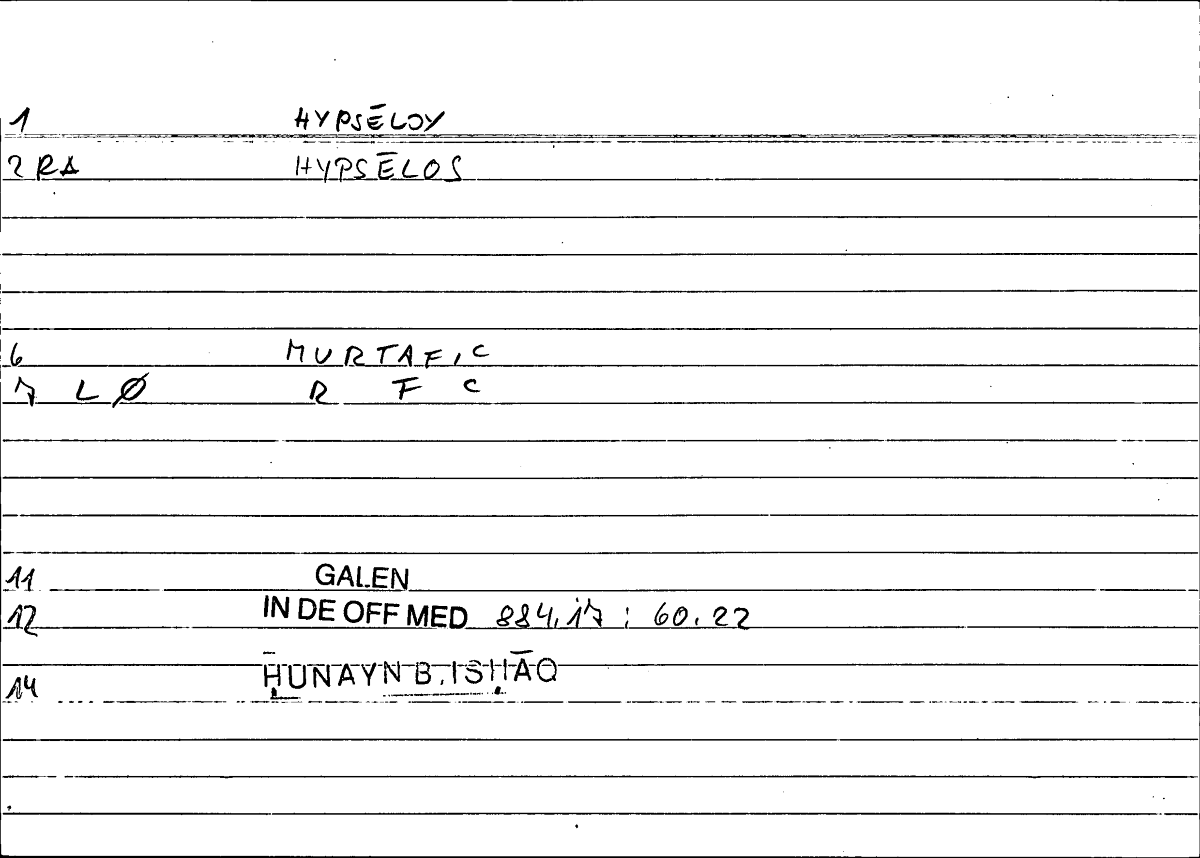 1 HYPSĒLOY
2 RA HYPSĒLOS
6 MURTAFIC
7 LØ R F C
11 GALEN
12 IN DE OFF MED 884,17 ; 60.22
14 ḤUNAYN B. ISḤĀQ